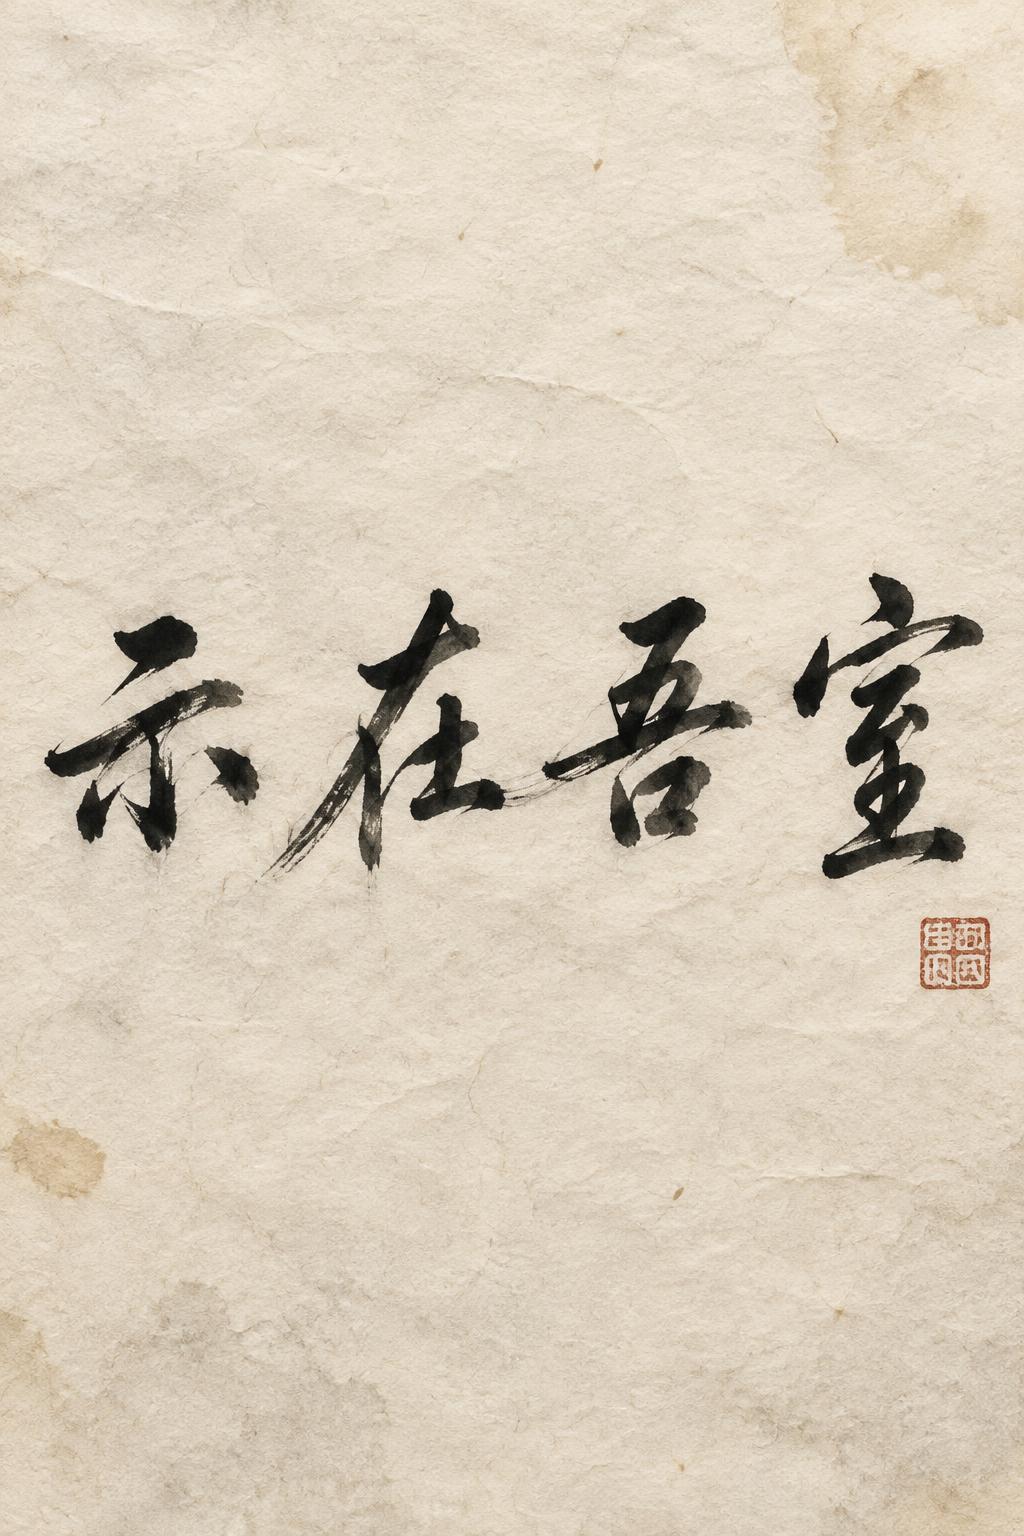 示在吾室